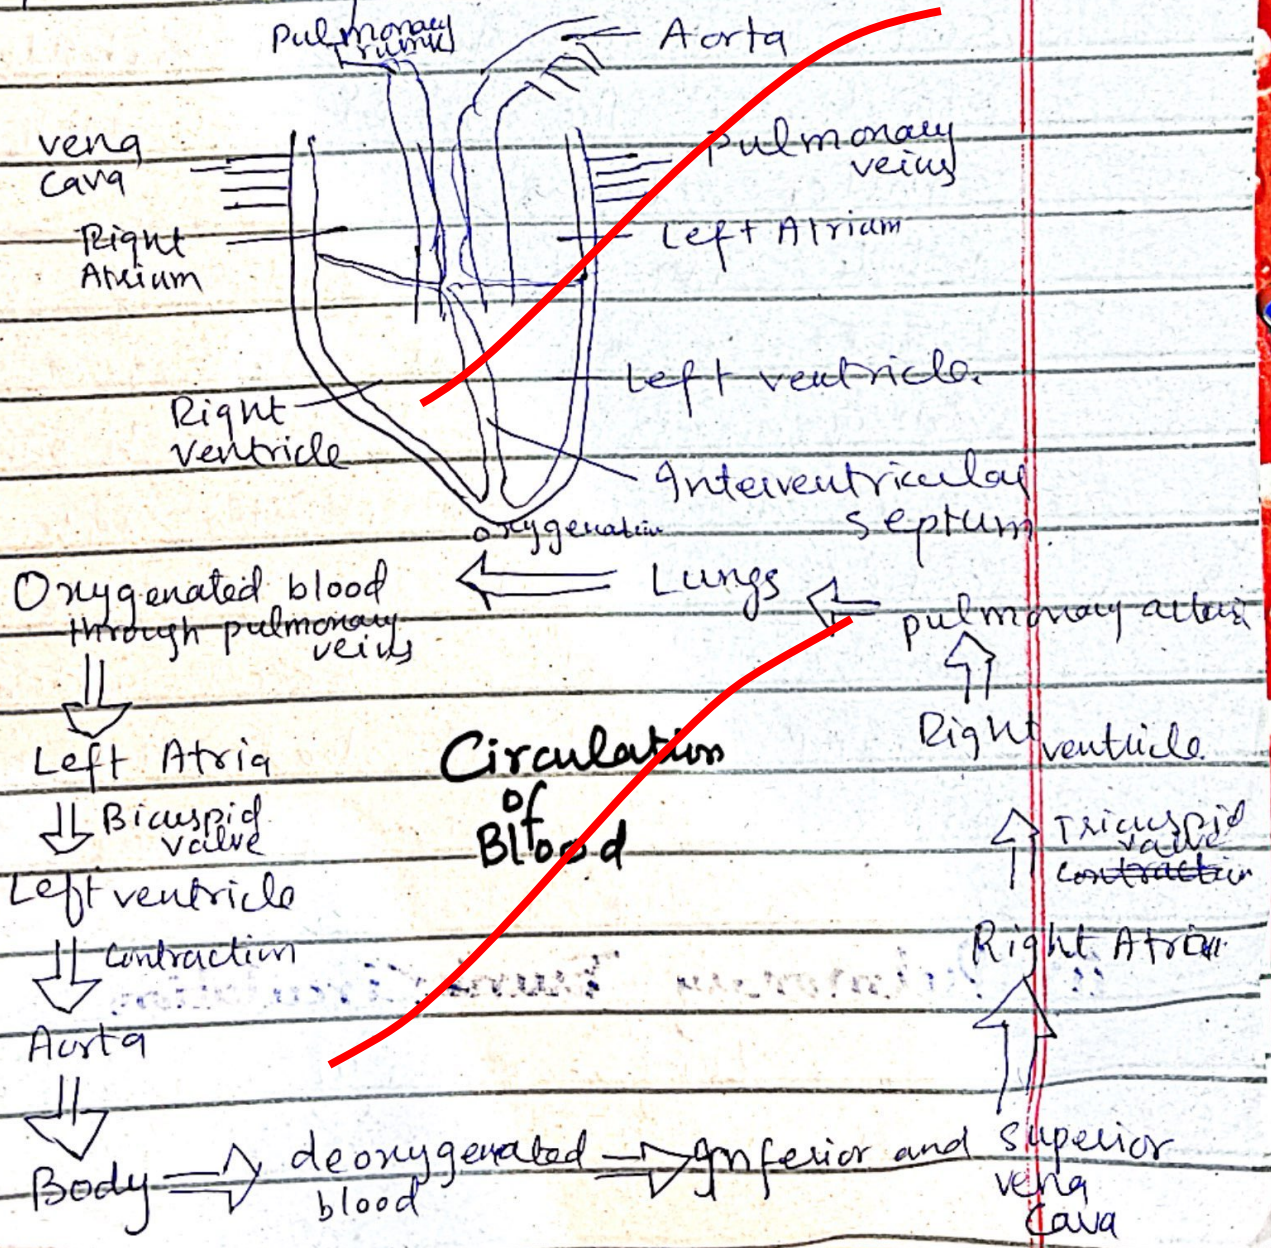 Pulmonary
Trunk
Aorta
vena
cava
Pulmonary
veins
Right
Atrium
Left Atrium
Left ventricle.
Right
ventricle
Interventricular
septum.
oxygenation
Oxygenated blood
through pulmonary
veins
Lungs
pulmonary
Right
ventricle
Left Atria
Circulation
of
Blood
Bicuspid
valve
Tricuspid
valve
contraction
Left ventricle
contraction
Right Atria
Aorta
Body
deoxygenated
blood
Inferior and Superior
vena
cava